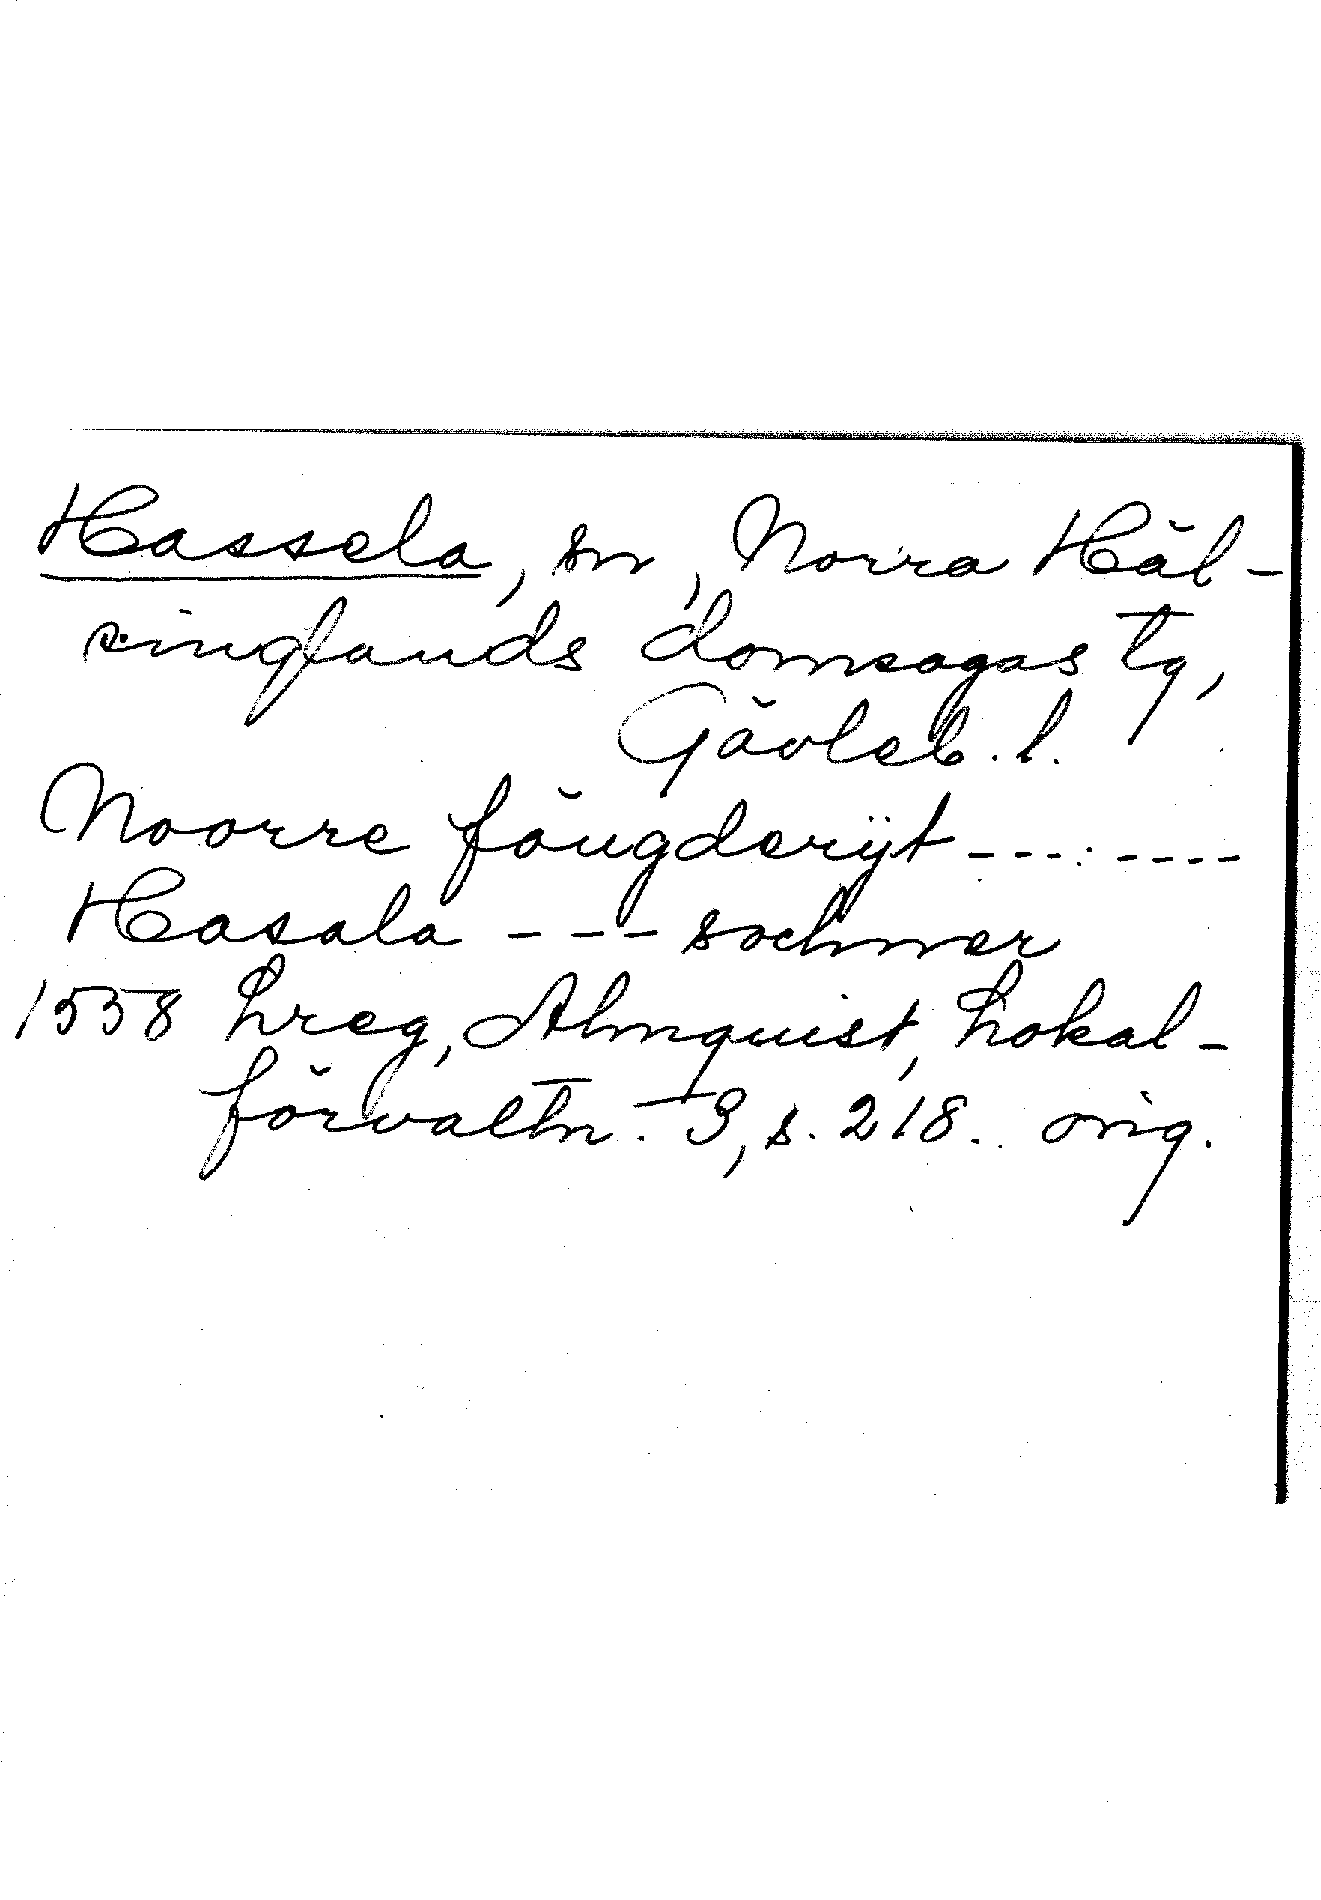 Hassela, sn, Norra Häl-
singlands domsagas tg,
Gävleb. l.
Noorre föugderÿt --- ----
Hasala --- sochnner
1558 Lreg, Almquist, Lokal-
förvaltn. 3, s. 218. orig.